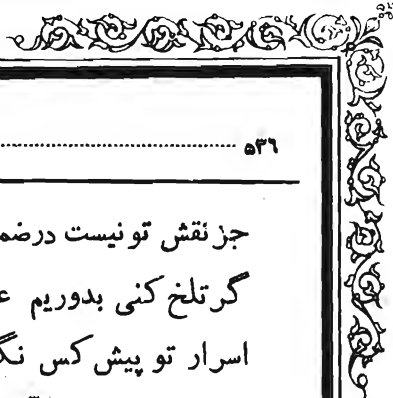 ۵۳۶
جز نقش تو نیست درضم
گر تلخ کنی بدوریم ع
اسرار تو پیش کس نگ